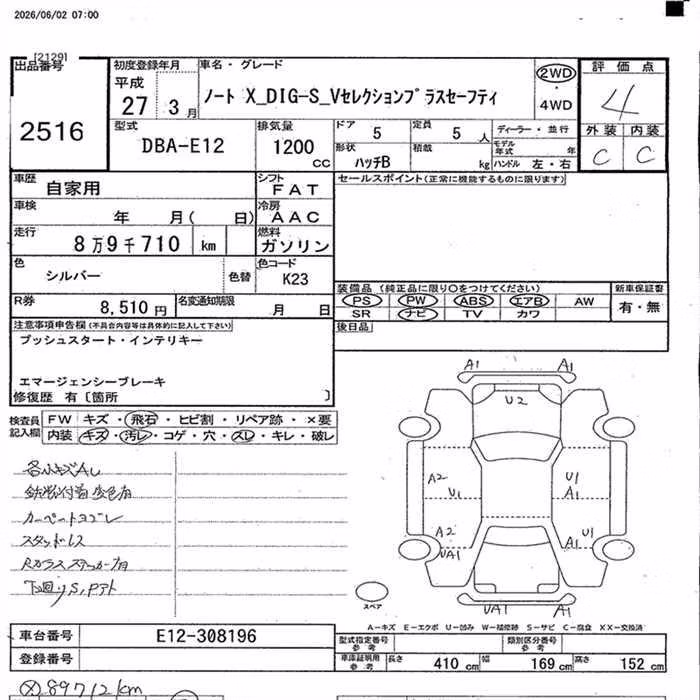 2026/06/02 07:00
[2129]
出品番号 2516
初度登録年月 平成 27 3 月
車名・グレード
ノート X_DIG-S_Vセレクションプラスセーフティ
2WD
・
4WD
評価点
4
外装 内装
C C
型式 DBA-E12
排気量 1200 CC
ドア 5
定員 5 人
ディーラー・並行
形状 ハッチB
積載 kg
モデル年式 年
ハンドル 左・右
車歴 自家用
シフト FAT
セールスポイント(正常に機能するものに限ります)
車検 年 月( 日)
冷房 AAC
走行 8万9千710 km
燃料 ガソリン
色 シルバー 色替
色コード K23
装備品 (純正品に限り○をつけてください)
新車保証書
有・無
PS PW ABS エアB AW
SR ナビ TV カワ
R券 8,510円
名変通知期限 月 日
後日品
注意事項申告欄(不具合内容等は具体的に記入して下さい)
プッシュスタート・インテリキー
エマージェンシーブレーキ
修復歴 有〔箇所 〕
検査員記入欄
FW キズ・飛石・ヒビ割・リペア跡・×要
内装 キズ・汚レ・コゲ・穴・スレ・キレ・破レ
各小キズAU
鉄粉付着変色有
カーペートヨゴレ
スタッドレス
Rガラスステッカー有
下廻りS,Pテト
A1 A1
U2
A2 U1
U1 A1
A2 U1
UA1 A1
UA1 A1
スペア
A-キズ E-エクボ U-凹み W-補修跡 S-サビ C-腐食 XX-交換済
車台番号 E12-308196
登録番号
型式指定番号 参考
類別区分番号 参考
車庫証明用 参考 長さ 410 cm 幅 169 cm 高さ 152 cm
89712km